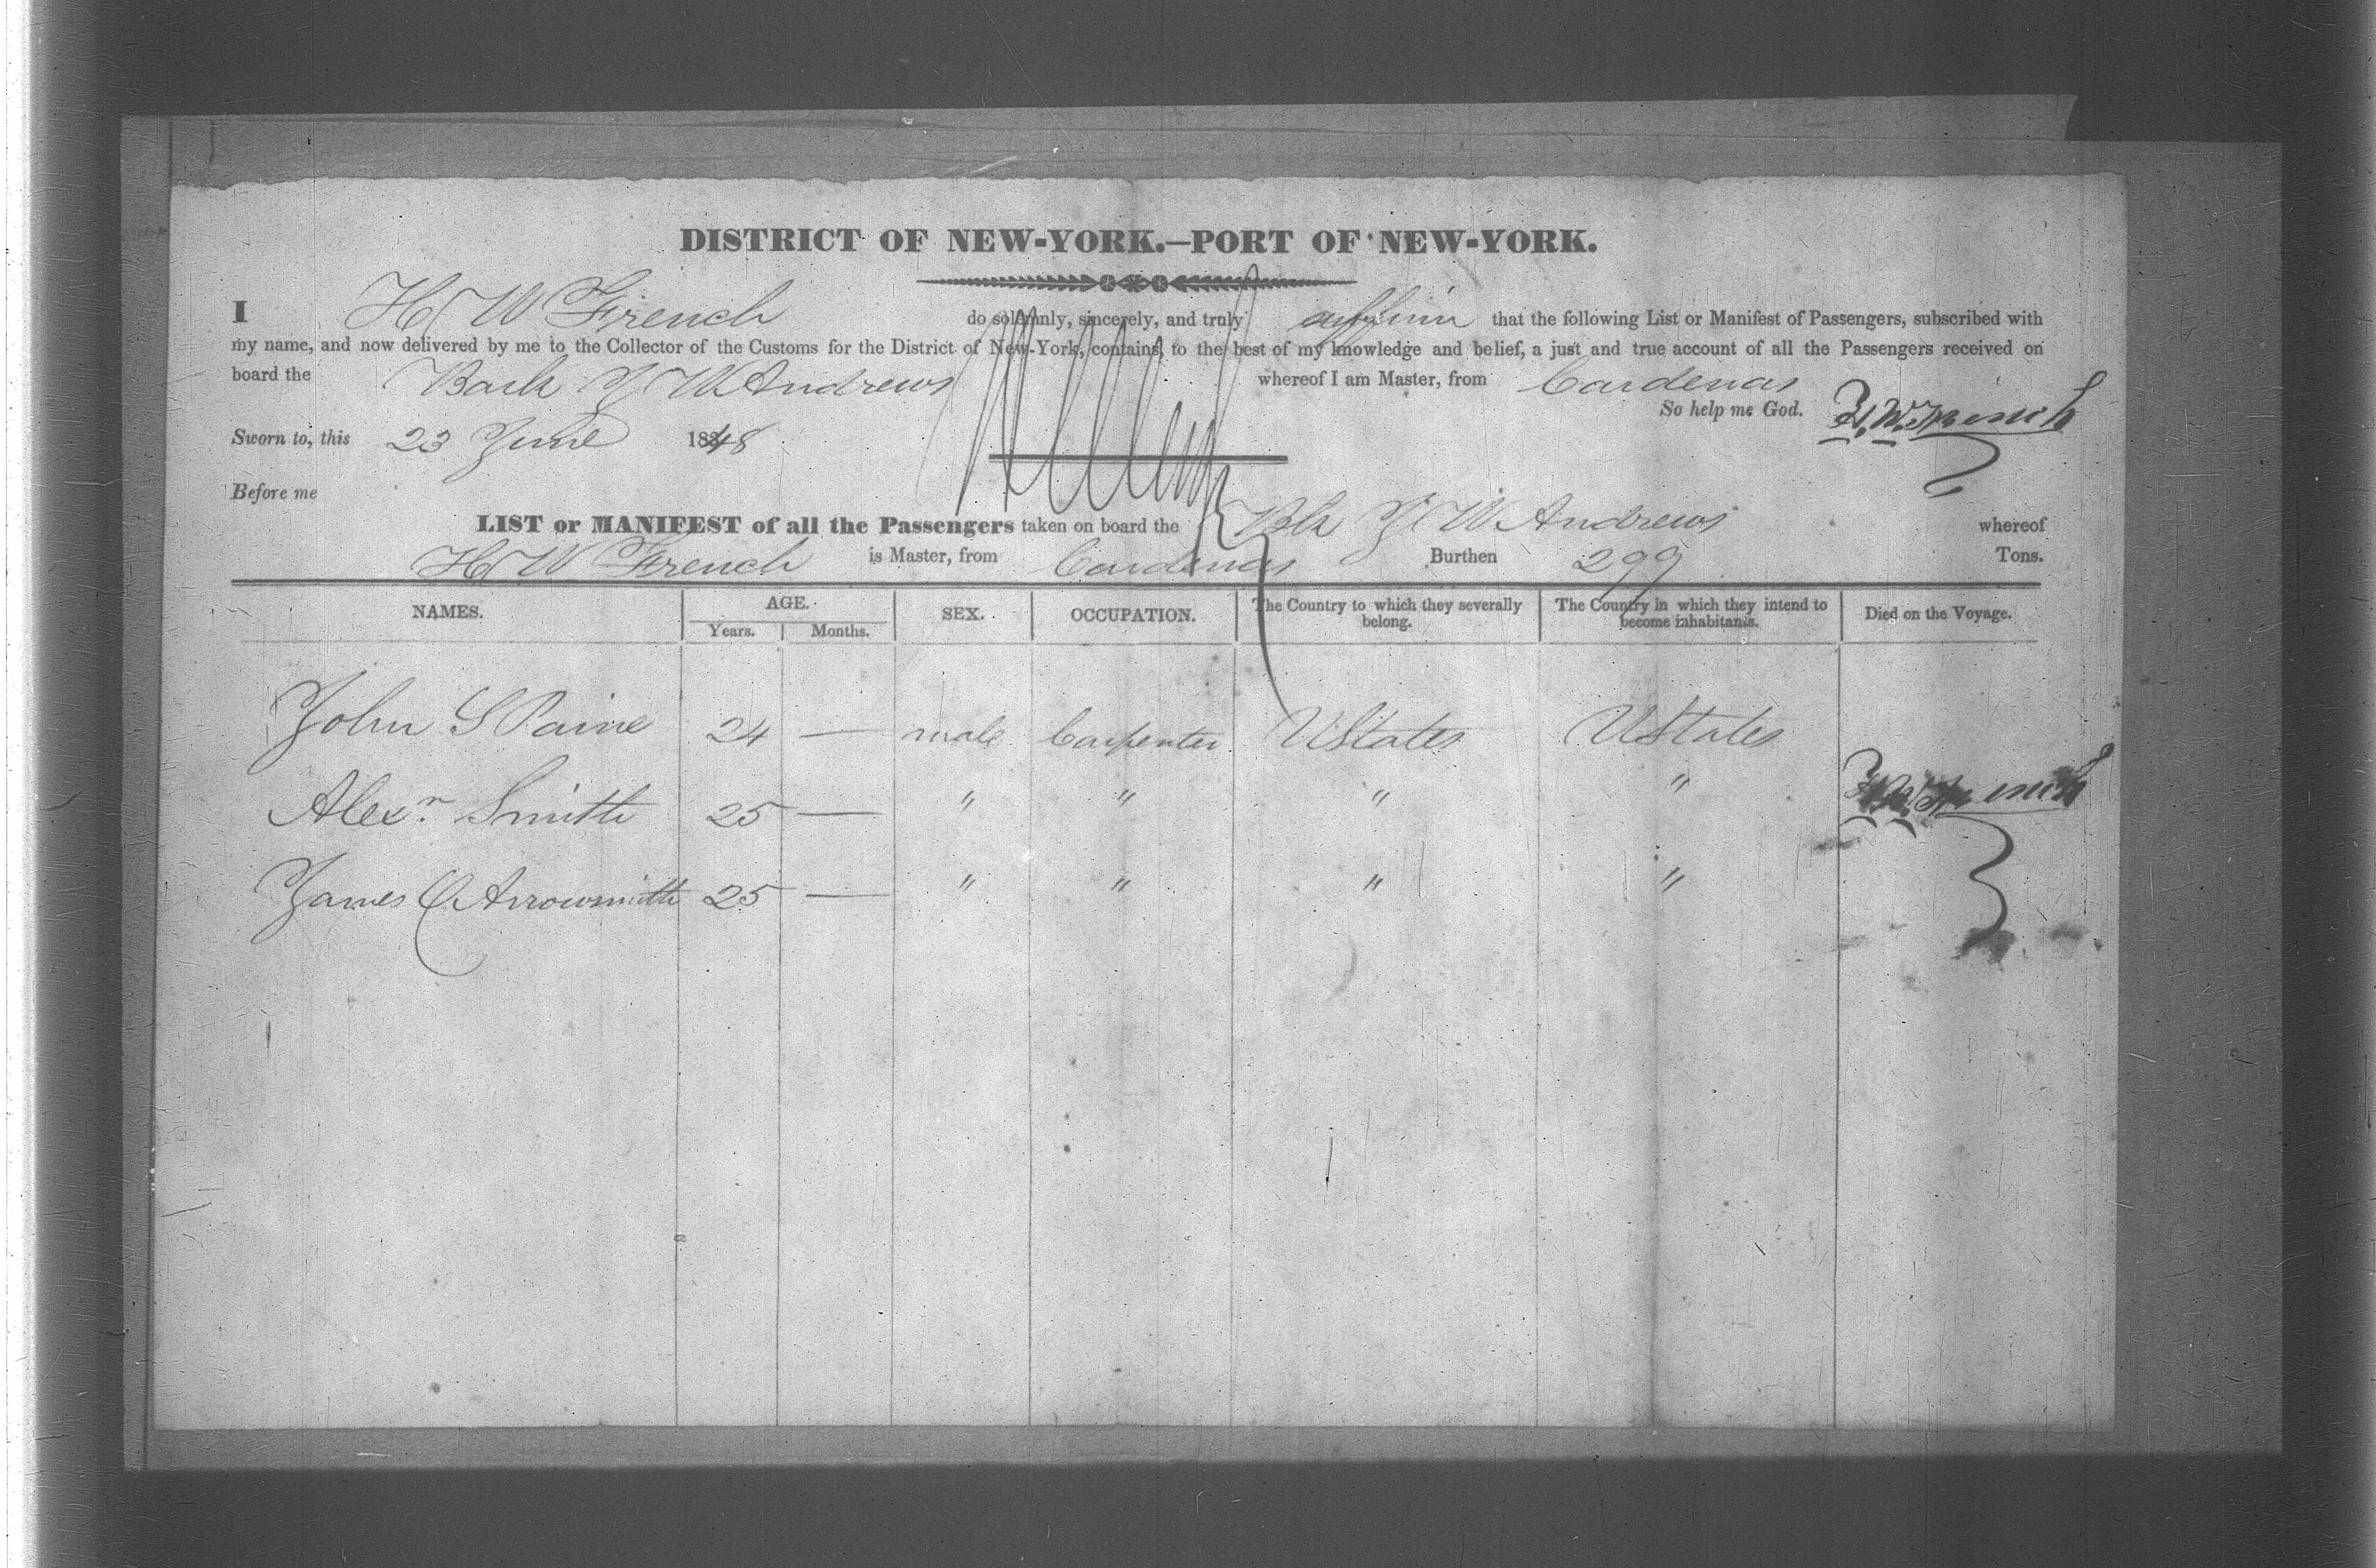 DISTRICT OF NEW-YORK.—PORT OF NEW-YORK.
I H W French do solemnly, sincerely, and truly affirm that the following List or Manifest of Passengers, subscribed with
my name, and now delivered by me to the Collector of the Customs for the District of New-York, contains, to the best of my knowledge and belief, a just and true account of all the Passengers received on
board the Bark J W Andrews whereof I am Master, from Cardenas
So help me God. H. W. French
Sworn to, this 23 June 1848
Before me
LIST or MANIFEST of all the Passengers taken on board the Bk J W Andrews whereof
H W French is Master, from Cardenas Burthen 299 Tons.
NAMES. AGE. SEX. OCCUPATION. The Country to which they severally belong. The Country in which they intend to become inhabitants. Died on the Voyage.
Years. Months.
John S Paine 24 — male Carpenter UStates UStates
Alexr Smith 25 — " " " " H. W. French
James C Arrowsmith 25 — " " " "